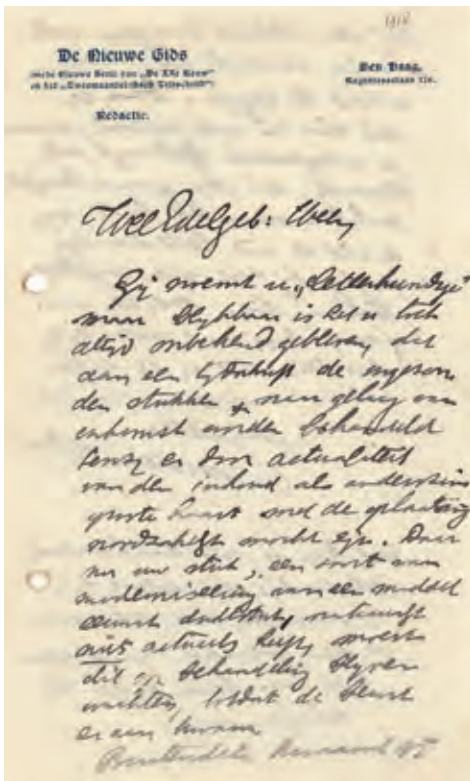 1918
De Nieuwe Gids
Den Haag,
en het „Tweemaandelijksch Tijdschrift"
Redactie.
WelEdelgeb: Heer,
Gij noemt u „letterkundige"
maar blijkbaar is het u toch
altijd onbekend gebleven, dat
aan een tijdschrift de ingezon
den stukken naar gelang van
inkomst worden behandeld
tenzij er door actualiteit
van den inhoud als anderszins
groote haast met de plaatsing
noodzakelijk mocht zijn. Daar
nu uw stuk, een soort van
moderniseering van een middel
eeuwsch natuurlijk
niets actueels heeft, moest
dit op behandeling blijven
wachten, totdat de beurt
er aan kwam
Buitendien